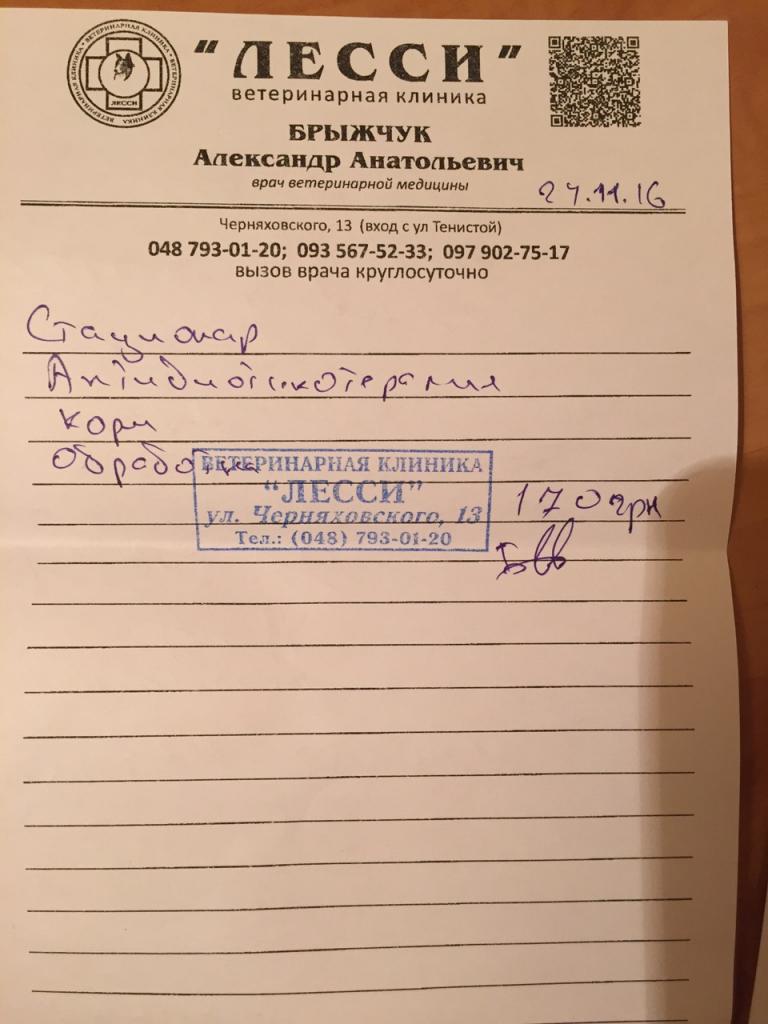 "ЛЕССИ"
ветеринарная клиника
ВЕТЕРИНАРНАЯ КЛИНИКА • ВЕТЕРИНАРНАЯ КЛИНИКА • ВЕТЕРИНАРНАЯ КЛИНИКА
ЛЕССИ
БРЫЖЧУК
Александр Анатольевич
врач ветеринарной медицины
24.11.16
Черняховского, 13 (вход с ул Тенистой)
048 793-01-20; 093 567-52-33; 097 902-75-17
вызов врача круглосуточно
Стационар
Антибиотикотерапия
корм
обработка
ВЕТЕРИНАРНАЯ КЛИНИКА
"ЛЕССИ"
ул. Черняховского, 13
Тел.: (048) 793-01-20
170 грн